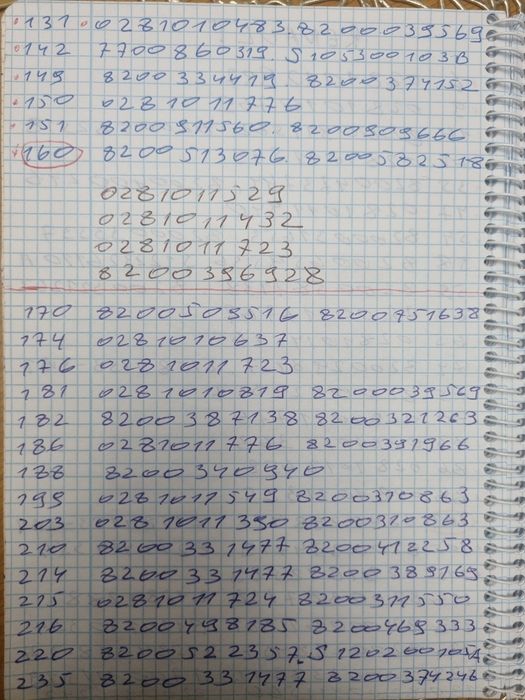 131 0281010483. 8200039569
142 7700860319. 5105300103B
149 8200334419. 8200374152
150 0281011776
151 8200911560. 8200909666
160 8200513076. 8200582518
0281011529
0281011432
0281011723
8200396928
170 8200509516 8200751638
174 0281010637
176 0281011723
181 0281010819 8200039569
182 8200387138 8200321263
186 0281011776 8200391966
188 8200340940
199 0281011549 8200310863
203 0281011390 8200310863
210 8200331477 8200412258
214 8200331477 8200389169
215 0281011724 8200311550
216 8200498185 8200469333
220 8200522357.
235 8200331477 8200374246